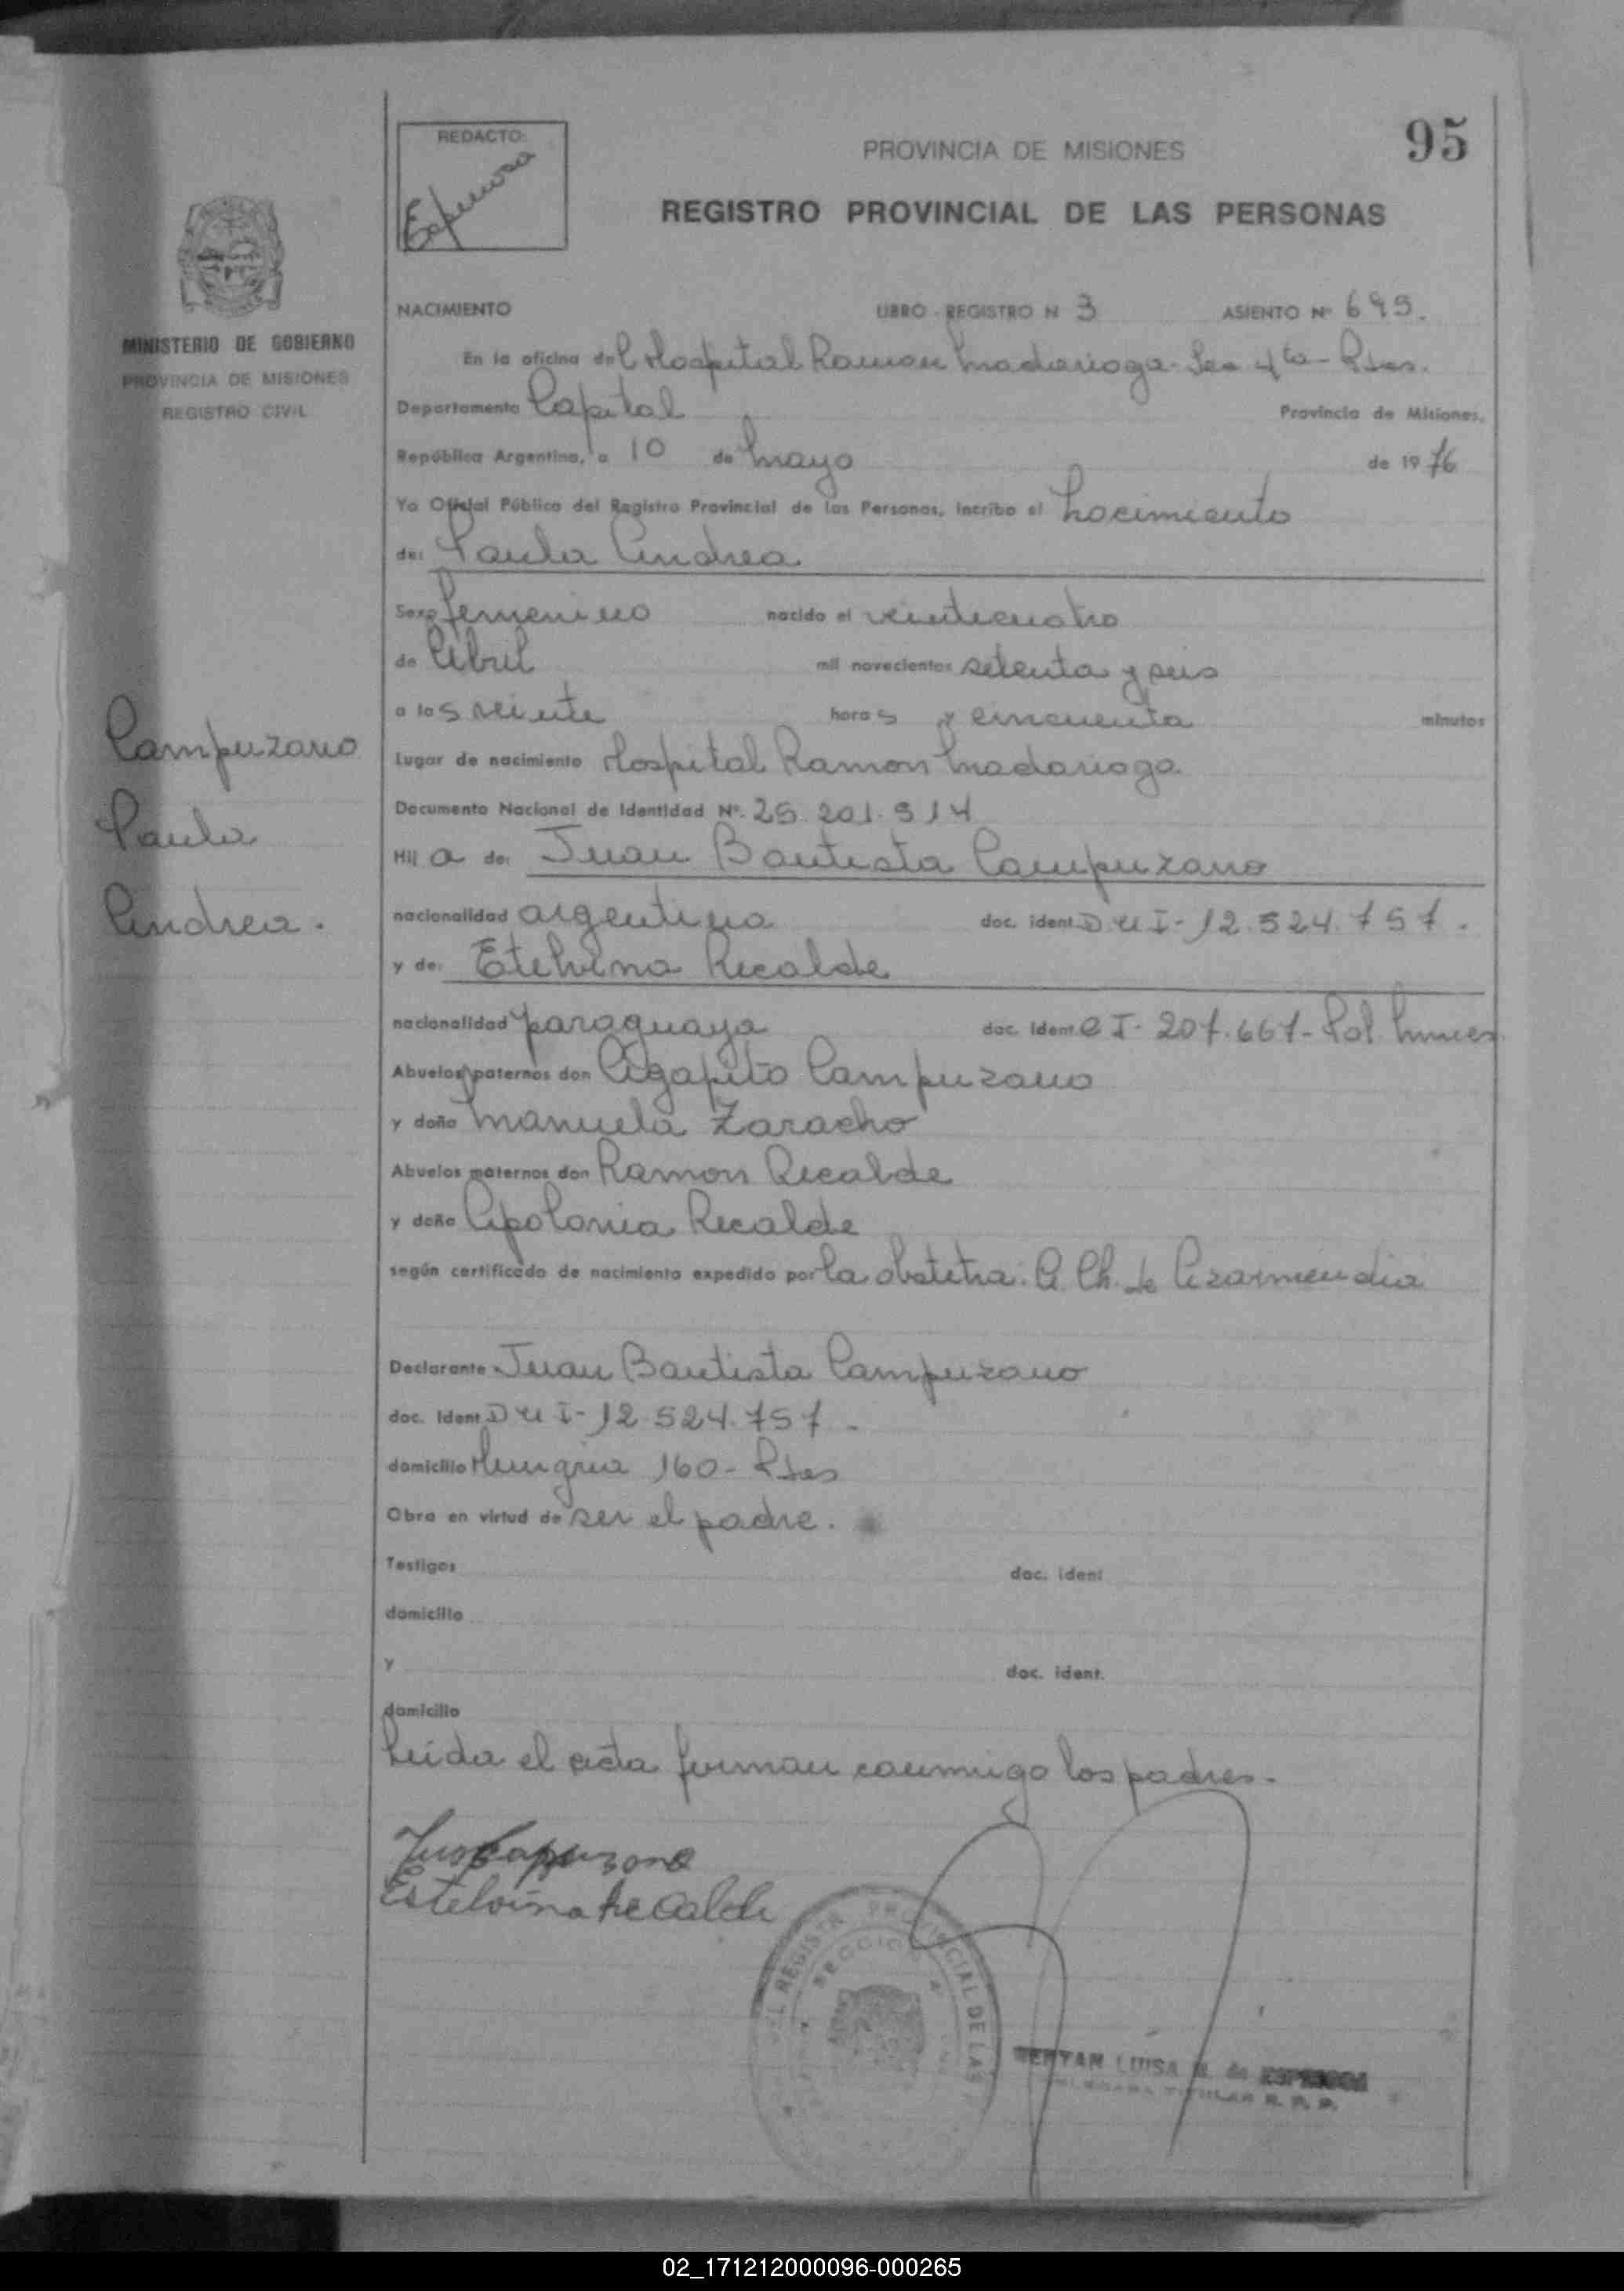 95
REDACTO:
Espinosa
PROVINCIA DE MISIONES
REGISTRO PROVINCIAL DE LAS PERSONAS
MINISTERIO DE GOBIERNO
PROVINCIA DE MISIONES
REGISTRO CIVIL
Campuzano
Paula
Andrea.
NACIMIENTO LIBRO - REGISTRO N 3 ASIENTO Nº 695.
En la oficina del Hospital Ramon Madariaga - Sec 4ta - Pdas.
Departamento Capital Provincia de Misiones,
República Argentina, a 10 de Mayo de 1976
Yo Oficial Público del Registro Provincial de las Personas, incribo el Nacimiento
de: Paula Andrea
Sexo femenino nacido el veinticuatro
de Abril mil novecientos setenta y seis
a las veinte horas y cincuenta minutos
Lugar de nacimiento Hospital Ramon Madariaga
Documento Nacional de Identidad Nº. 25.201.514
Hij a de: Juan Bautista Campuzano
nacionalidad argentina doc. ident. DNI - 12.524.757.
y de: Etelvina Recalde
nacionalidad paraguaya doc. ident. CI - 207.667 - Pol. Mnes
Abuelos paternos don Agapito Campuzano
y doña Manuela Zaracho
Abuelos maternos don Ramon Recalde
y doña Apolonia Recalde
según certificado de nacimiento expedido por la obstetra: A. Ch. de Azarmendia
Declarante Juan Bautista Campuzano
doc. ident DNI - 12.524.757.
domicilio Hungria 160 - Pdas
Obra en virtud de ser el padre.
Testigos doc. ident
domicilio
y doc. ident.
domicilio
Leida el acta firman conmigo los padres.
Juan Campuzano
Estelvina Recalde
DEL REGISTRO PROVINCIAL DE LAS
SECCION 4
LUISA M. de ESPINOSA
TITULAR R. P. P.
02_171212000096-000265